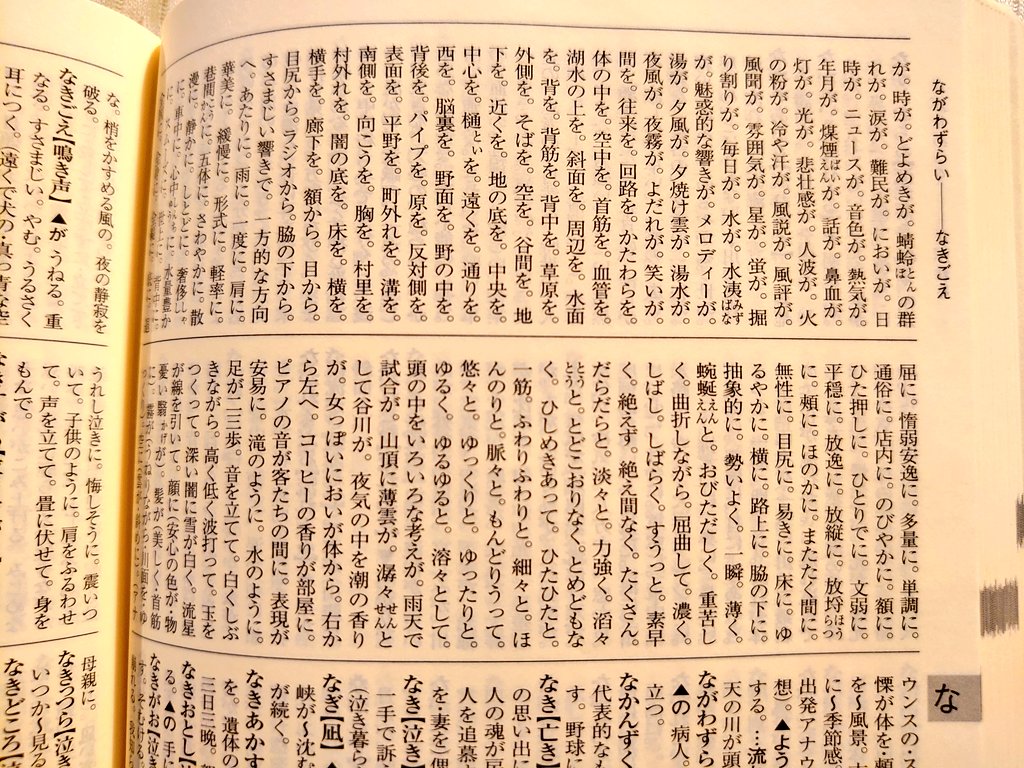 ながわずらい――なきごえ
が。時が。どよめきが。蜻蛉とんぼの群
れが。涙が。難民が。においが。日
時が。ニュースが。音色が。熱気が。
年月が。煤煙ばいえんが。話が。鼻血が。
灯が。光が。悲壮感が。人波が。火
の粉が。冷や汗が。風説が。風評が。
風聞が。雰囲気が。星が。蛍が。掘
り割りが。毎日が。水が。水洟みずばな
が。魅惑的な響きが。メロディーが。
湯が。夕風が。夕焼け雲が。湯水が。
夜風が。夜霧が。よだれが。笑いが。
間を。往来を。回路を。かたわらを。
体の中を。空中を。首筋を。血管を。
湖水の上を。斜面を。周辺を。水面
を。背を。背筋を。背中を。草原を。
外側を。そばを。空を。谷間を。地
下を。近くを。地の底を。中央を。
中心を。樋といを。遠くを。通りを。
西を。脳裏を。野面を。野の中を。
背後を。パイプを。原を。反対側を。
表面を。平野を。町外れを。溝を。
南側を。向こうを。胸を。村里を。
村外れを。闇の底を。床を。横を。
横手を。廊下を。額から。目から。
目尻から。ラジオから。脇の下から。
すさまじい響きで。一方的な方向
へ。あたりに。雨に。一度に。肩に。
華美に。緩慢に。形式に。軽率に。
巷間こうかんに。五体に。さわやかに。散
漫に。静かに。しとどに。奢侈しゃ
屈に。惰弱安逸に。多量に。単調に。
通俗に。店内に。のびやかに。額に。
ひた押しに。ひとりでに。文弱に。
平穏に。放逸に。放縦に。放埒ほうらつ
に。頬に。ほのかに。またたく間に。
無性に。目尻に。易きに。床に。ゆ
るやかに。横に。路上に。脇の下に。
抽象的に。勢いよく。一瞬。薄く。
蜿蜒えんえんと。おびただしく。重苦し
く。曲折しながら。屈曲して。濃く。
しばし。しばらく。すうっと。素早
く。絶えず。絶え間なく。たくさん。
だらだらと。淡々と。力強く。滔々
とうとうと。とどこおりなく。とめどもな
く。ひしめきあって。ひたひたと。
一筋。ふわりふわりと。細々と。ほ
んのりと。脈々と。もんどりうって。
悠々と。ゆっくりと。ゆったりと。
ゆるく。ゆるゆると。溶々として。
頭の中をいろいろな考えが。雨天で
試合が。山頂に薄雲が。潺々せんせんと
して谷川が。夜気の中を潮の香り
が。女っぽいにおいが体から。右か
ら左へ。コーヒーの香りが部屋に。
ピアノの音が客たちの間に。表現が
安易に。滝のように。水のように。
足が二三歩。音を立てて。白くしぶ
きながら。高く低く波打って。玉を
つくって。深い闇に雪が白く。流星
が線を引いて。顔に(安心の色が・物
憂い翳かげが)。髪が(美しく・首筋
ウンスの・ス
慄が体を・
を〜風景。大
に〜季節感
出発アナウ
想)。▲よう
する。…流
天の川が頭
ながわずら
▲の 病人。
立つ。
なかんずく
代表的な
す。野球に
なき【亡き
の思い出に
人の魂が
人を追慕
を・妻を)偲
なき【泣き
一手で訴
(泣き暮ら
なぎ【凪】
峡が〜沈む
が続く。
なきあかす
を。遺体の
三日三晩。
なきおとし
る。▲の 手に
なきがお【泣
な
な。梢をかすめる風の。夜の静寂を
破る。
なきごえ【鳴き声】 ▲が うねる。重
なる。すさまじい。やむ。うるさく
耳につく。(遠くで犬の・真っ青な空
うれし泣きに。悔しそうに。震いつ
いて。子供のように。肩をふるわせ
て。声を立てて。畳に伏せて。身を
もんで。
母親に。
なきつら【泣き
いつか〜見る
なきどころ【